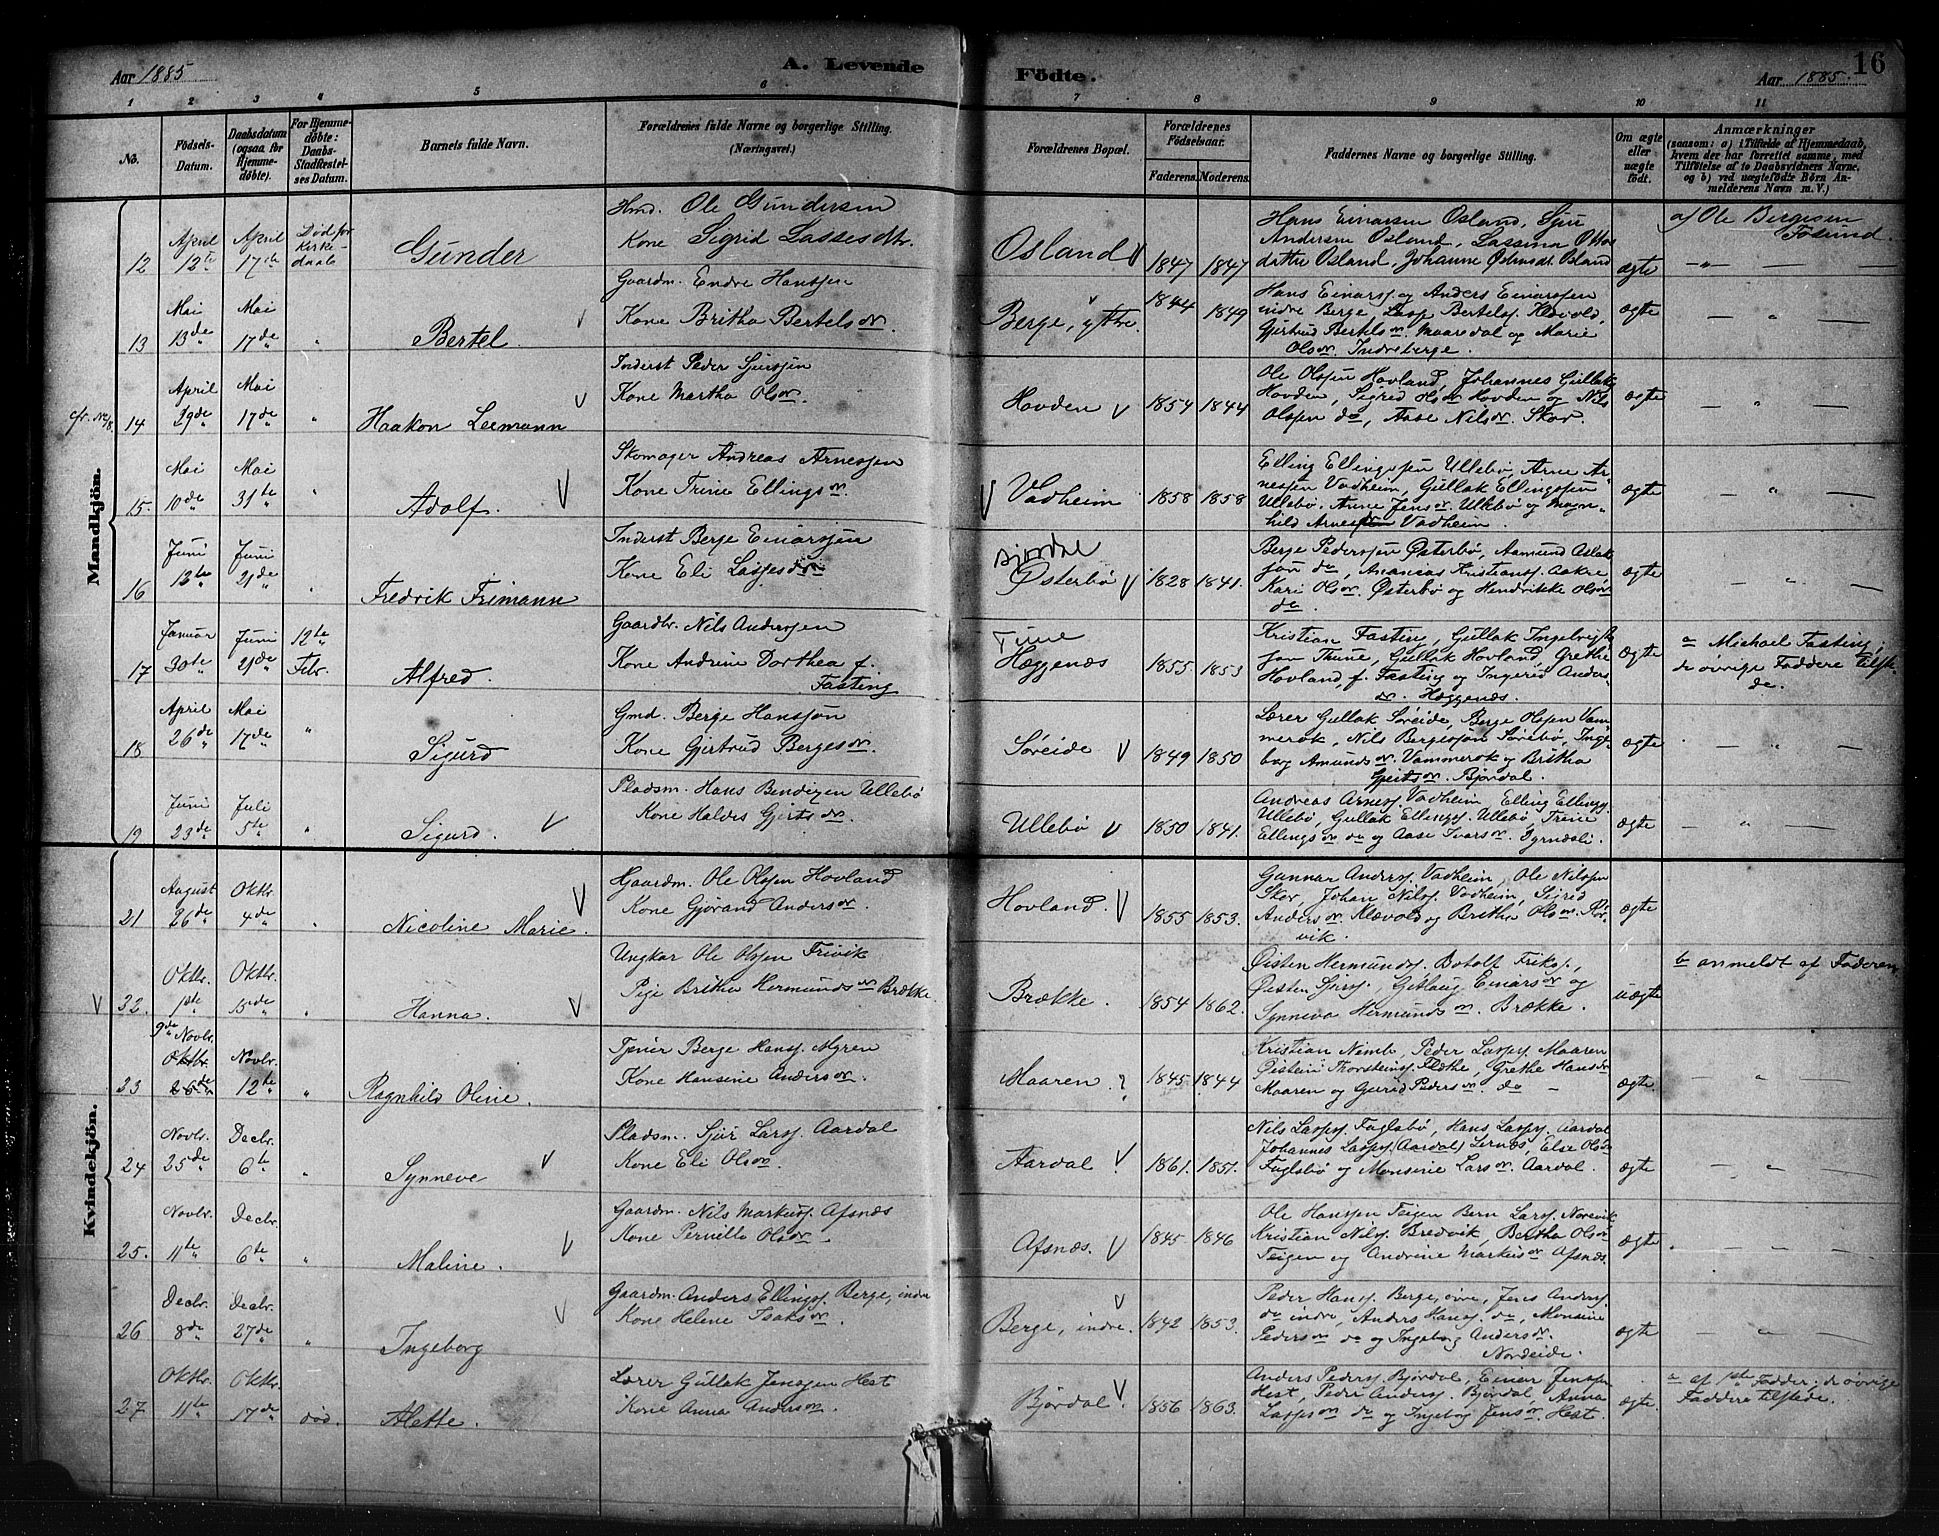 Aar 1885
A. Levende
Födte.
Aar 1885
16
1 2 3 4 5 6 7 8 9 10 11
No.
Födsels-
Datum.
Daabsdatum
(ogsaa for
Hjemme-
døbte).
For Hjemme-
döbte:
Daabs-
Stadfæstel-
ses Datum.
Barnets fulde Navn.
Forældrenes fulde Navne og borgerlige Stilling.
(Næringsvei.)
Forældrenes Bopæl.
Forældrenes
Födselsaar.
Faderens. Moderens.
Faddernes Navne og borgerlige Stilling.
Om ægte
eller
uægte
födt.
Anmærkninger
(saasom: a) i Tilfælde af Hjemmedaab,
hvem der har forrettet samme, med
Tilföielse af to Daabsvidners Navne,
og b) ved uægtefödte Börn An-
melderens Navn m. V.)
Mandkjön.
12
April
12te
April
17de
Død for
Kirke-
daab
Gunder
Hmd. Ole Gundersen
Kone Sigrid Lassesdtr.
Osland V
1847 1847
Hans Einarsen Osland, Sjur
Andersen Osland, Lassina Ottos
datter Osland, Johanne Østensdt. Osland
ægte
a/ Ole Bergesen
— " — —
13
Mai
13de
"
Mai
17de
"
"
Bertel.
Gaardm. Endre Hanssen
Kone Britha Bertelsdr.
Berge, ytre
1844 1849
Hans Einarss. og Anders Einarssen
indre Berge, Lasse Bertels. Klævold,
Gjertrud Bertelsdr. Maaredal og Marie
Olsdr. Indreberge.
ægte
— " —
cfr. No. 8.
14
April
29de
"
Mai
17de
"
"
Haakon Leemann
Inderst Peder Sjurssen
Kone Martha Olsdr.
Hovden V
1854 1844
Ole Olssen Hovland, Johannes Gullaks.
Hovden, Sigrid Olsdr. Hovden og Nils
Olssen do, Aase Nilsdr. Skor.
ægte
— " —
15.
Mai
10de
"
Mai
31te
"
"
Adolf. V
Skomager Andreas Arnessen
Kone Trine Ellingsdr.
V Vadheim
1858 1858
Elling Ellingssen Ullebø, Arne Ar-
nessen Vadheim, Gullak Ellingssen
Ullebø, Anne Jensdr. Ullebø og Magn-
hild Arnesdr. Vadheim.
ægte
— " —
16
Juni
13te
"
Juni
21de
"
"
Fredrik Frimann
Inderst Berge Einarssen
Kone Eli Lassesdr.
Bjordal
Østerbø V
1828 1841.
Berge Pederssen Østerbø, Aamund Aslak-
sen do, Andreas Kristians. Aakre
Kari Olsdr. Østerbø og Hendrikke Olsdr.
do.
ægte
— " —
17
Januar
30te
"
Juni
21de
"
12te
"
Febr.
Alfred.
Gaardbr. Nils Anderssen
Kone Andrine Dorthea f.
Fasting
Tune
Hæggenæs
1855 1853
Kristian Fasting, Gullak Ingebrigt-
sen Thune, Gullak Hovland, Grethe
Hovland, f. Fasting og Ingerid Anders-
dr. Hæggenæs.
ægte
a Michael Fasting;
de øvrige Faddere tilste-
de.
18
April
26de
"
Mai
17de
"
"
Sigurd
Gmd. Berge Hanssøn
Kone Gjertrud Bergesdr.
Søreide V
1849 1850
Lærer Gullak Søreide, Berge Olssen Vam-
merok, Nils Bergessøn Sørebø, Inge-
borg Amundsdr. Vammerok og Britha
Gjertsdr. Bjordal.
ægte
— " —
19
Juni
23de
"
Juli
5te
"
"
Sigurd. V
Pladsm. Hans Bendixen Ullebø
Kone Maldes Gjertsdr.
Ullebø V
1850 1841.
Andreas Arness. Vadheim Elling Ellings.
Ullebø, Gullak Ellings. Ullebø Trine
Ellingsdr. do og Aase Ivarsdr. Dyrndali
ægte
— " —
Kvindekjön.
21
August
26de
"
Oktbr.
4de
"
"
Nicoline Marie. V
Gaardm. Ole Olssen Hovland
Kone Gjørand Andersdr.
Hovland. V
1855 1853.
Gunnar Anderss. Vadheim, Ole Nilssen
Skor, Johan Nilss. Vadheim, Sigrid
Andersdr. Klævold og Britha Olsdr. Ris-
vik.
ægte
V 32.
Oktbr.
1ste
"
Oktbr.
15de
"
"
Hanna. V
Ungkar Ole Olssen Frivik
Pige Britha Hermundsdr. Brække
Brække.
1854 1862.
Østen Hermunds. Botolf Eriks.,
Østen Sjurs. Gitlaug Einarsdr. og
Synneva Hermundsdr. Brække.
uægte
b anmeldt af Faderen
9de Novbr.
23
Oktbr.
26de
Novbr.
12te
"
"
Ragnhild Oline.
Tjener Berge Hanss. Myren
Kone Hansine Andersdr.
Maaren. ?
1845 1844
Kristian Nimb, Peder Larss. Maaren
Østein Thorsteins. Flæthe, Grethe Hansdr.
Maaren og Gurid Pedersdr. do —
ægte
— " —
24
Novbr.
25de
"
Decbr.
6te
"
"
Synneve V
Pladsm. Sjur Larss. Aardal
Kone Eli Olsdr.
Aardal V
1861. 1851.
Nils Larss. Fuglebø, Hans Larss. Aardal
Johannes Larss. (Aardal) Lernæs, Else Olsdr.
Fuglebø og Monsine Larsdr. Aardal.
ægte
— " —
25.
Novbr.
11te
"
Decbr.
6te
"
"
Maline. V
Gaardm. Nils Markuss. Afsnæs
Kone Pernille Olsdr.
Afsnæs. V
1845 1846
Ole Hanssen Teigen Bern Larss. Norevik
Kristian Nilss. Bredvik, Bertha Olsdr.
Teigen og Andrine Markusdr. Afsnæs.
ægte
— " —
26
Decbr.
8de
"
Decbr.
27de
"
"
Ingeborg
Gaardm. Anders Ellings. Berge, indre
Kone Helene Isaksdr.
Berge, indre.
1842 1853.
Peder Hanss. Berge, øvre, Jens Anderss.
do indre, Anders Hanss. do, Monsine
Pedersdr. do og Ingeborg Andersdr.
Nordeide.
ægte
— " —
27
Oktbr.
11te
"
Oktbr.
17de
"
død.
Alette.
Lærer Gullak Jenssen Hest
Kone Anna Andersdr.
Bjordal V
1856 1863.
Anders Peders. Bjordal, Einar Jenssen
Hest, Peder Anders. Bjordal Anna
Lassesdr. do og Ingeborg Jensdr. Hest.
ægte.
a af 1ste Fadder; de øvrige
Faddere tilstede.